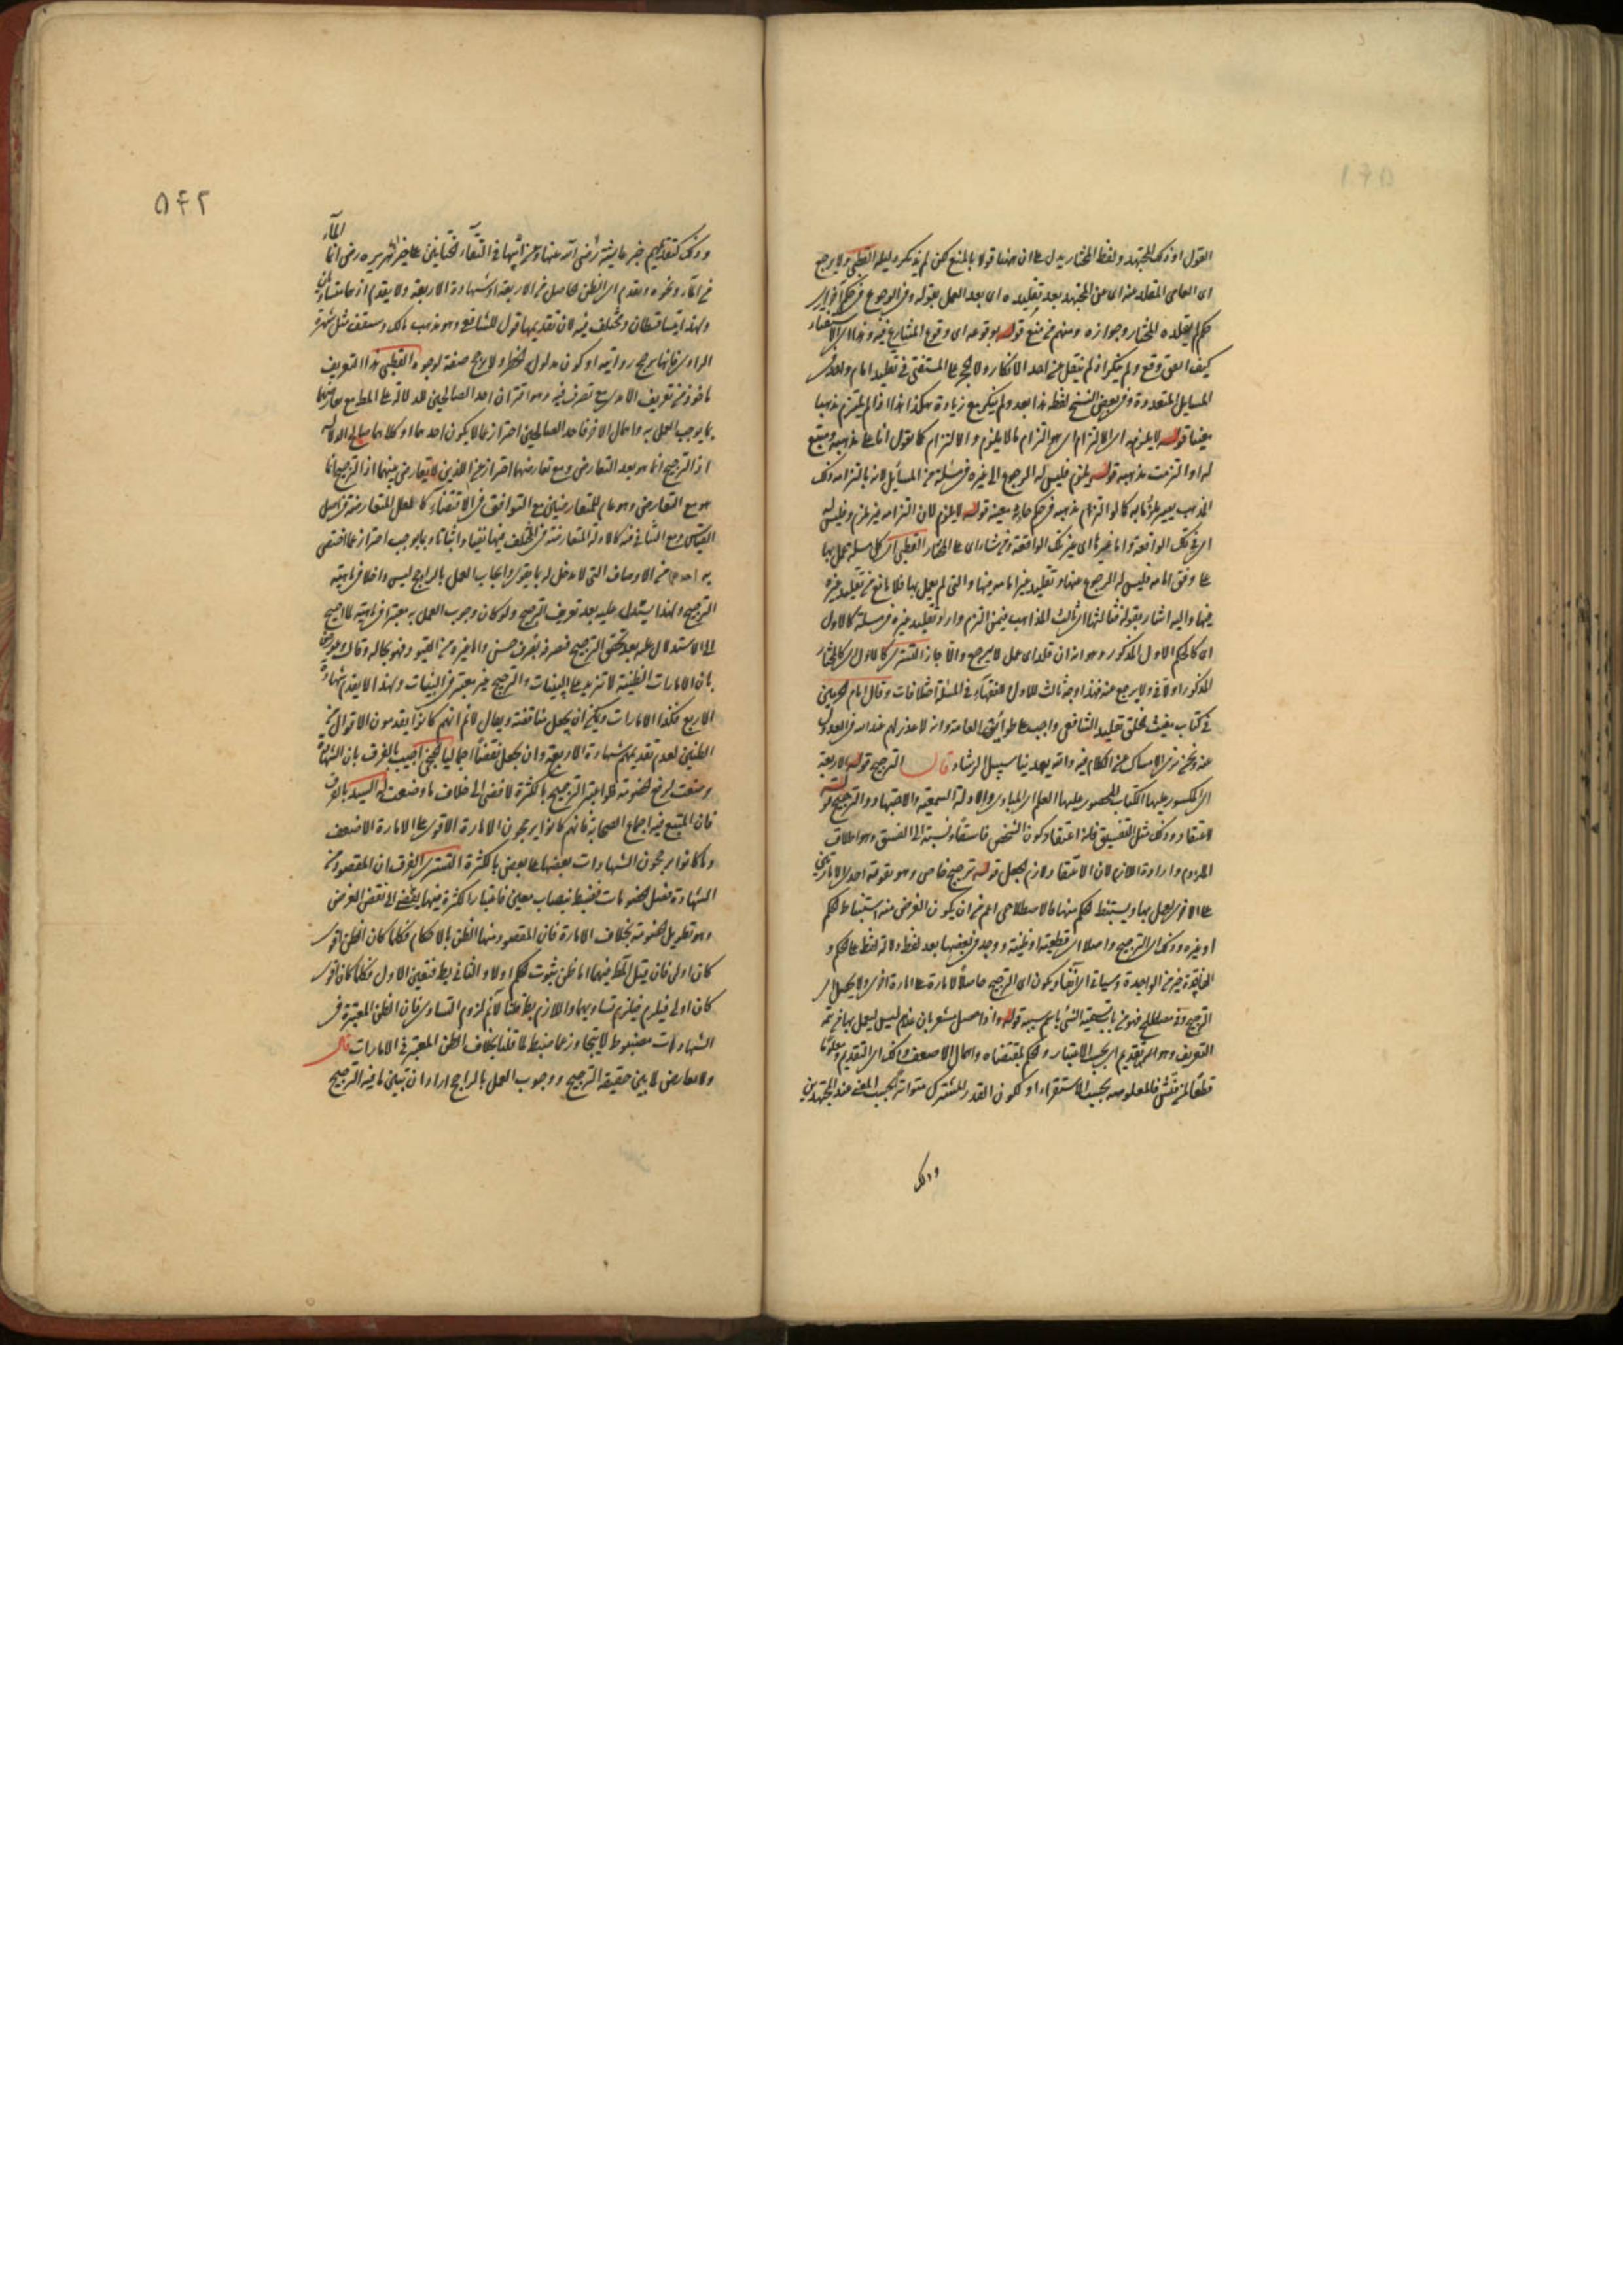 القول او ذلك المجتهد ولفظ المختار يدل على ان ههنا قولا بالمنع لكن لم يذكر دليله القطبي ولا يرجع
اى العامى المقلد عنه اى عن المجتهد بعد تقليده اى بعد العمل بقوله وفى الرجوع فى حكم اخر
حكم يقلده المختار جوازه ومنهم من منع قوله بوقوعه اى وقوع المتنازع فيه وهذا
كيف اتفق وقع ولم ينكر اذ لم ينقل عن احد الانكار ولا الحجر على المستفتى فى تقليد امام واحد فى
المسايل المتعددة وفى بعض النسخ لفظ هذا بعد ولم ينكر مع زيادة هكذا هذا اذا لم يلتزم مذهبا
معينا قوله لا يلزمه اى الالتزام اى هو التزام ما لا يلزم والالتزام كما يقول انا على مذهبه ومتبع
له او التزمت مذهبه قوله يلزم فليس له الرجوع الى غيره فى مسئلة من المسائل لانه بالتزامه ذلك
المذهب يصير ملزما به كما لو التزام مذهبه فى حكم حادثة معينة قوله لا يلزم لان التزامه غير ملزم وليس له
اى فى تلك الواقعة واما غيرها اى غير تلك الواقعة فى شاء اى على المختار القطبي اى كل مسئلة عمل بها
على وفق امامه فليس له الرجوع عنها وتقليد غير امامه فيها والتى لم يعمل بها فلا مانع من تقليد غيره
فيها واليه اشار بقوله وثالثها اى ثالث المذاهب فيمن التزم واراد تقليد غيره فى مسئلة كالاول
اى كالحكم الاول المذكور وهو انه ان قلد اى عمل لا يرجع والا جاز التستري كالاول اى كالمختار
المذكور اولا فى ولا يرجع عنه فهذا وجه ثالث للاول للفقهاء فى المسئلة اختلافات وقال امام الحرمين
فى كتاب مغيث الخلق تقليد الشافعى واجب على طوائف العامة وانه لا عذر لهم عند الله فى العدول
عنه ونحن نرى الامساك عن الكلام فيه والله يهدينا سبيل الرشاد قال الترجيح قوله الاربعة
اى المكسور عليها الكتاب المحصور عليها العلم اى المبادى والادلة السمعية والاجتهاد والترجيح قوله
لاعتقاد وذلك مثل التفسيق فانه اعتقاد كون الشخص فاسقا ونسبته الى الفسق وهو اطلاق
الملزوم وارادة اللازم لان الاعتقاد لازم للجعل قوله ترجيح خاص وهو تقوية احدى الامارتين
على الاخرى ليعمل بها ويستنبط الحكم منها فالاصطلاحى اعم من ان يكون الغرض منه استنباط الحكم
او غيره وذلك اى الترجيح واصلا اى قطعية او ظنية ووجد فى بعضها بعد لفظ دلالة لفظ على الحكم و
القطعية غير الواحدة وسياتى الآن يكون اى الترجيح حاصلا لامارة على امارة اخرى ولا يحصل اى
الترجيح فى مصطلح فهو من باب تسمية الشئ باسم سببه قوله واذا حصل مشعر بان علم ليس ليعمل بها فى تتمة
التعريف وهو اى التقديم اى يجب الاعتبار والحكم بمقتضاه واهمال الاضعف وذلك اى التقديم معلوما
قطعا لمن فتش فالمعلومية بحسب الاستقراء او لكون القدر المشترك متواترا بحسب المعنى عند المجتهدين
وذلك
۵۴۲
وذلك كتقديم خبر عايشة رضى الله عنها وعن ابيها فى التقاء الختانين على خبر ابى هريره رضى انما الماء
من الماء ونحوه وتقدم اى الظن الحاصل من الاربعة او شهادة الاربعة ولا يقدم اذ هما متساويان
ولهذا يتساقطان ومختلف فيه لان تقديمها قول للشافعى وهو مذهب مالك وسيقف مثل شهرة
الراوى فانها مرجح روايته او كون مدلول الحظر ولا يرجح صفة لوجوه القطبي هذا التعريف
ماخوذ من تعريف الامدى مع تصرف فيه وهو اقتران احد الصالحين للدلالة على المطلوب مع تعارضهما
بما يوجب العمل به واهمال الاخر فاحد الصالحين احترازا عما لا يكون احدهما او كلاهما صالحا للدلالة
اذ الترجيح انما هو بعد التعارض ومع تعارضهما احترازا عن اللذين لا تعارض بينهما اذ الترجيح انما
هو مع التعارض وهو عام للمتعارضين مع التوافق فى الاقتضاء كالعلل المتعارضة فى اصل
القياس ومع التنافى فيه كالادلة المتعارضة فى المختلف فيها نفيا واثباتا وبما يوجب احترازا عما اختص
به احدهما من الاوصاف التى لا مدخل له بما يقوى وايجاب العمل بالراجح ليس داخلا فى ماهية
الترجيح ولهذا يستدل عليه بعد تعريف الترجيح ولو كان وجوب العمل به معتبرا فى ماهيته لما احتيج
الى الاستدلال عليه بعد تحقق الترجيح فتصرفه تصرف حسن والمغيره من القيود فهو بحاله وقال وعورض
بان الامارات الظنية لا تزيد على البينات والترجيح غير معتبر فى البينات ولهذا لا يقدم شهادة
الاربع فكذا الامارات ويمكن ان يجعل مناقضة ويقال لا نم انهم كانوا يقدمون الاقوى من
الظنين لعدم تقديمهم شهادة الاربعة وان يجعل نقضا اجماليا الخنجي اجيب بالفرق بان الشهادة
وضعت لدفع الخصومة فلو اعتبر الترجيح بالكثرة لافضى الى خلاف ما وضعت له السيد بالفرق
فان المتبع فيه اجماع الصحابة فانهم كانوا يرجحون الامارة الاقوى على الامارة الاضعف
وما كانوا يرجحون الشهادات بعضها على بعض بالكثرة التستري الفرق ان المقصود من
الشهادة فصل الخصومات فضبط بنصاب معين فاعتبار الكثرة فيها يفضى الى نقض الغرض
وهو تطويل الخصومة بخلاف الامارة فان المقصود منها الظن بالاحكام فكلما كان الظن اقوى
كان اولى فان قيل المطلوب فيهما اما ظن ثبوت الحكم اولا والثانى بط فتعين الاول فكلما كان اقوى
كان اولى فيلزم تساويهما واللازم بط قلنا لا نم لزوم التساوى فان الظن المعتبرة فى
الشهادات مضبوط لا يتجاوز عما ضبط لما قلنا بخلاف الظن المعتبر فى الامارات قال
ولا تعارض لما بين حقيقة الترجيح ووجوب العمل بالراجح اراد ان تبيين ما فيه الترجيح